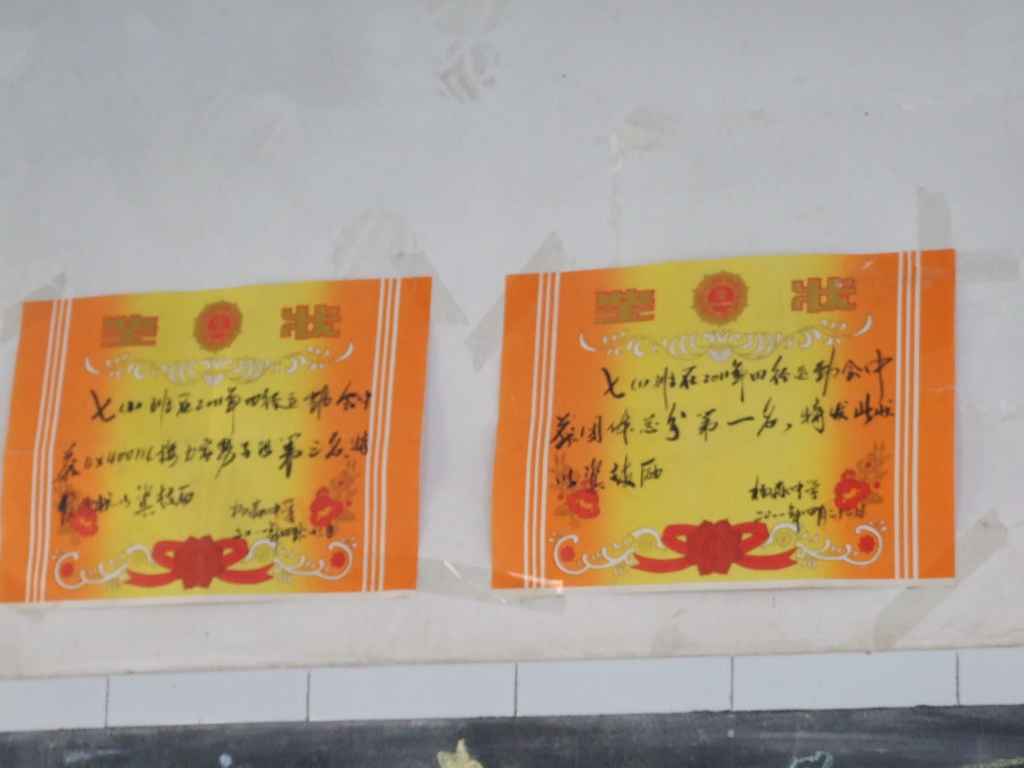 奖 状
七(1)班在2011年田径运动会中
4×400m接力赛男子组第三名,特
发此状以资鼓励
中学
二〇一一年四月
奖 状
七(1)班在2011年田径运动会中
获团体总分第一名,特发此状
以资鼓励
中学
二〇一一年四月二十八日